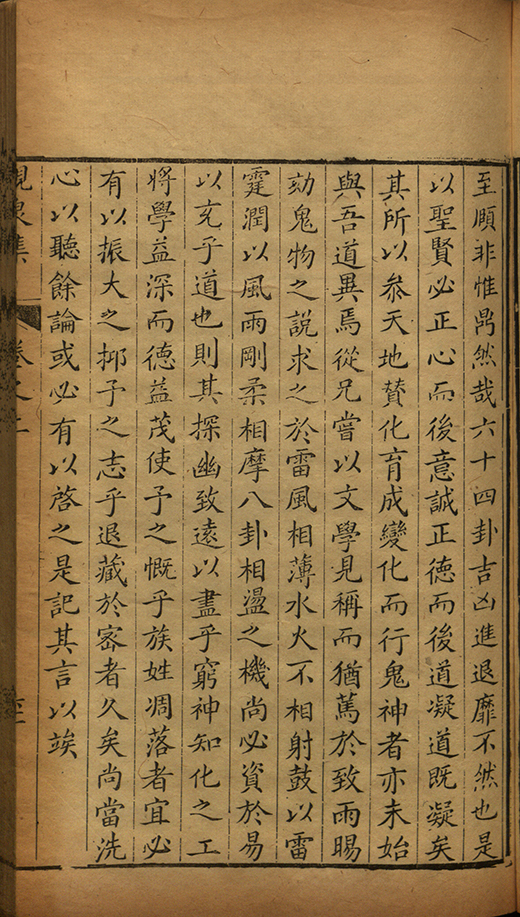 至順非惟鼎然哉六十四卦吉凶進退靡不然也是
以聖賢必正心而後意誠正德而後道凝道既凝矣
其所以叅天地賛化育成變化而行鬼神者亦未始
與吾道異焉從兄嘗以文學見稱而猶篤於致雨暘
劾鬼物之說求之於雷風相薄水火不相射鼓以雷
霆潤以風雨剛柔相摩八卦相盪之機尚必資於易
以充乎道也則其探幽致遠以盡乎窮神知化之工
將學益深而德益茂使予之慨乎族姓凋落者宜必
有以振大之抑予之志乎退藏於宻者久矣尚當洗
心以聽餘論或必有以啓之是記其言以竢
峴泉集 卷之二